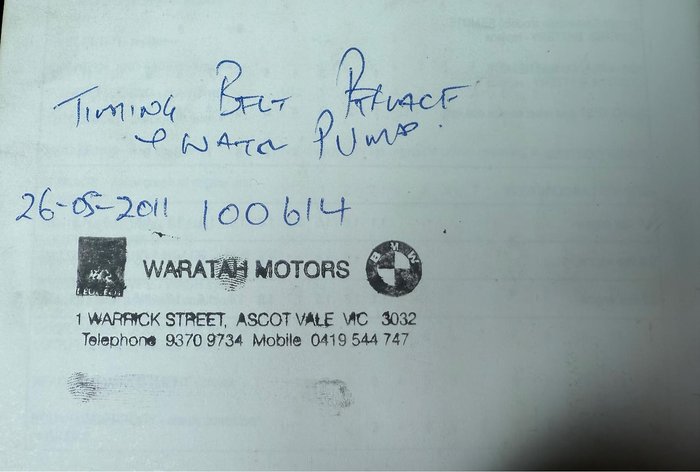 TIMING BELT REPLACE
& WATER PUMP.
26-05-2011 100614
PEUGEOT
WARATAH MOTORS
BMW
1 WARRICK STREET, ASCOT VALE VIC 3032
Telephone 9370 9734 Mobile 0419 544 747